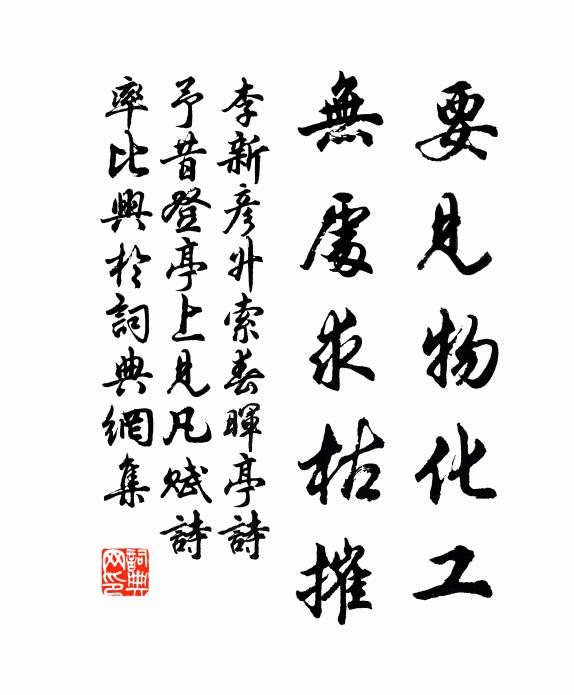 要見物化工
無處求枯摧
李新彥外索春暉亭詩
予昔登亭上見凡賦詩
率比興於詞典網集
詞典網印